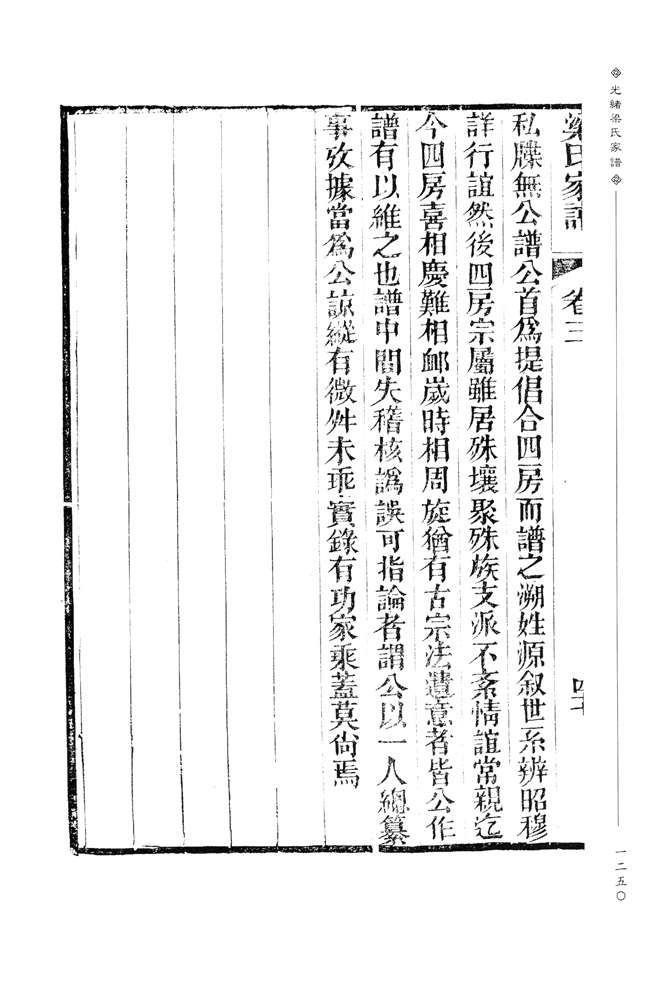 光緒梁氏家譜
梁氏家譜 卷三 四十
私牒無公譜公首爲提倡合四房而譜之溯姓源叙世系辨昭穆
詳行誼然後四房宗屬雖居殊壤聚殊族支派不紊情誼常親迄
今四房喜相慶難相卹歲時相周旋猶有古宗法遺意者皆公作
譜有以維之也譜中間失稽核譌誤可指論者謂公以一人總纂
事攷據當爲公諒縱有微舛未乖實錄有功家乘蓋莫尙焉
一二五〇